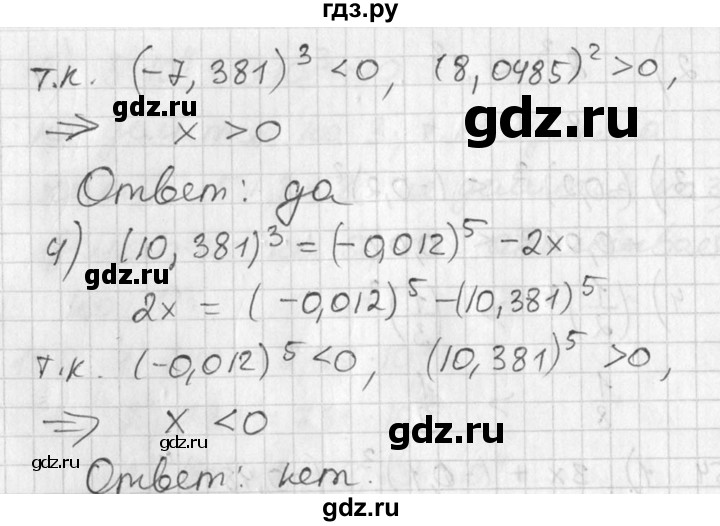 гдз.ру
т.к. (-7,381)³ <0, (8,0485)² >0,
gdz.ru
gdz.ru
⇒ x >0
Ответ: да
4) (10,381)³ = (-0,012)⁵ -2x
gdz.ru
2x = (-0,012)⁵ -(10,381)⁵
т.к. (-0,012)⁵ <0, (10,381)⁵ >0,
⇒ x <0
gdz.ru
gdz.ru
gdz.ru
Ответ: нет.
gdz.ru